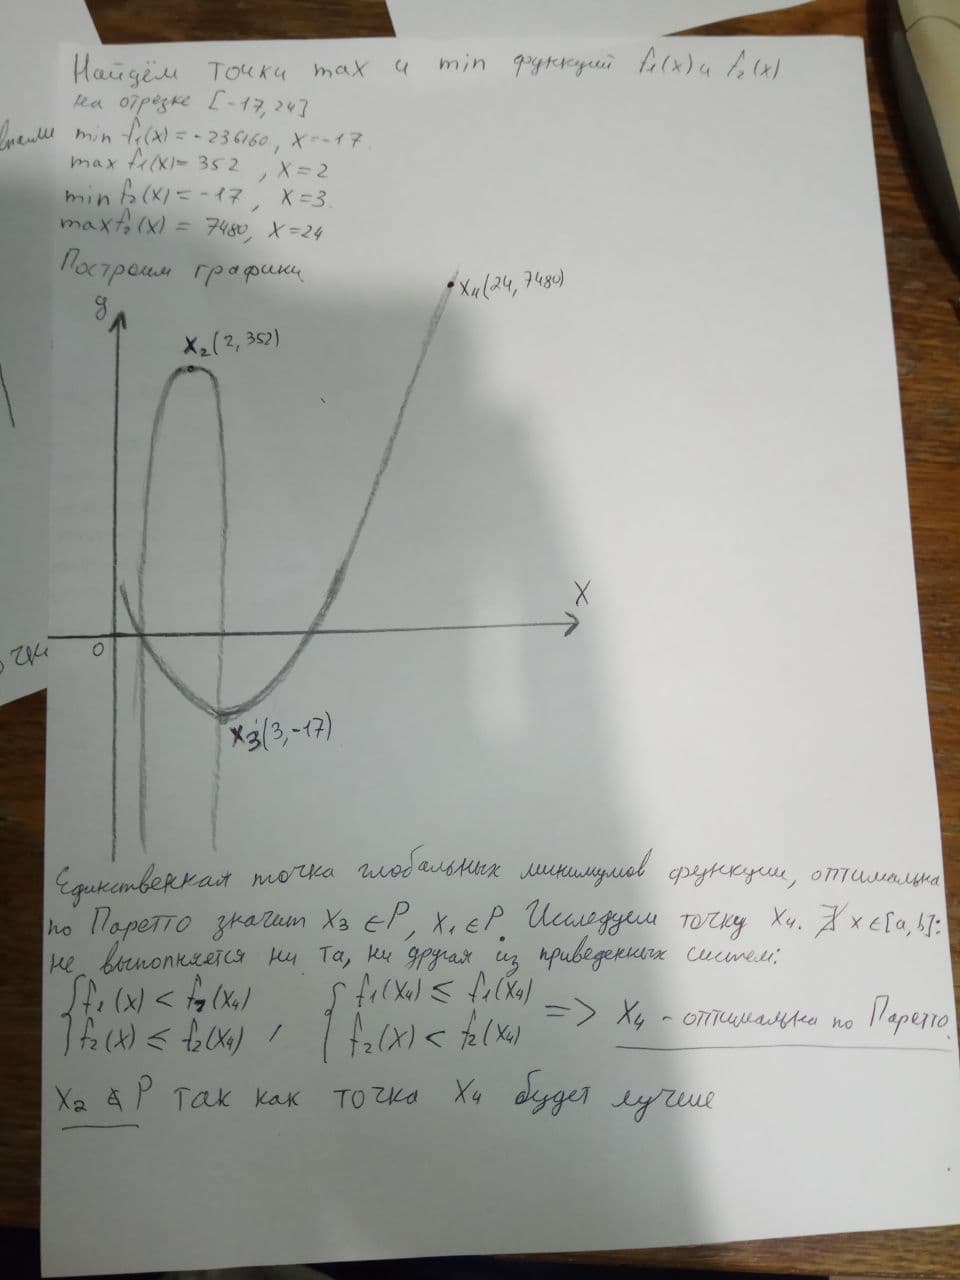 Найдём точки max и min функций f₁(x) и f₂(x)
на отрезке [-17, 24]
min f₁(x) = -236160, x=-17.
max f₁(x)= 352 , x=2
min f₂(x) = -17, x=3.
max f₂(x) = 7480, x=24
Построим графики
y
x₄(24, 7480)
x₂(2, 352)
X
0
x₃(3,-17)
Единственная точка глобальных минимумов функции, оптимальна
по Паретто значит x₃ ∈ P, x₁ ∈ P. Исследуем точку x₄. ∄ x ∈ [a, b]:
не выполняется ни та, ни другая из приведенных систем:
{ f₁(x) < f₂(x₄) { f₁(x₄) ≤ f₁(x₄)
{ f₂(x) ≤ f₂(x₄) , { f₂(x) < f₂(x₄) => x₄ - оптимальна по Паретто.
x₂ ∉ P так как точка x₄ будет лучше